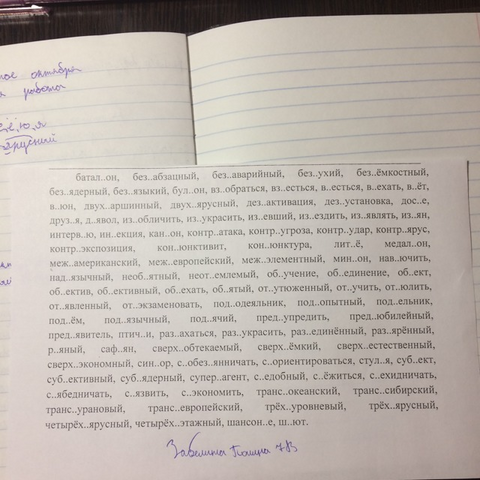 ное октября
я работа
е, ё, ю, я
ярусный
батал..он, без..абзацный, без..аварийный, без..ухий, без..ёмкостный,
без..ядерный, без..языкий, бул..он, вз..обраться, вз..есться, в..есться, в..ехать, в..ёт,
в..юн, двух..аршинный, двух..ярусный, дез..активация, дез..установка, дос..е,
друз..я, д..явол, из..обличить, из..украсить, из..евший, из..ездить, из..являть, из..ян,
интерв..ю, ин..екция, кан..он, контр..атака, контр..угроза, контр..удар, контр..ярус,
контр..экспозиция, кон..юнктивит, кон..юнктура, лит..ё, медал..он,
меж..американский, меж..европейский, меж..элементный, мин..он, нав..ючить,
над..язычный, необ..ятный, неот..емлемый, об..учение, об..единение, об..ект,
об..ектив, об..ективный, об..ехать, об..ятый, от..утюженный, от..учить, от..юлить,
от..явленный, от..экзаменовать, под..одеяльник, под..опытный, под..ельник,
под..ём, под..язычный, под..ячий, пред..упредить, пред..юбилейный,
пред..явитель, птич..и, раз..ахаться, раз..украсить, раз..единённый, раз..ярённый,
р..яный, саф..ян, сверх..обтекаемый, сверх..ёмкий, сверх..естественный,
сверх..экономный, син..ор, с..обез..янничать, с..ориентироваться, стул..я, суб..ект,
суб..ективный, суб..ядерный, супер..агент, с..едобный, с..ёжиться, с..ехидничать,
с..ябедничать, с..язвить, с..экономить, транс..океанский, транс..сибирский,
транс..урановый, транс..европейский, трёх..уровневый, трёх..ярусный,
четырёх..ярусный, четырёх..этажный, шансон..е, ш..ют.
Забелина Полина 7В